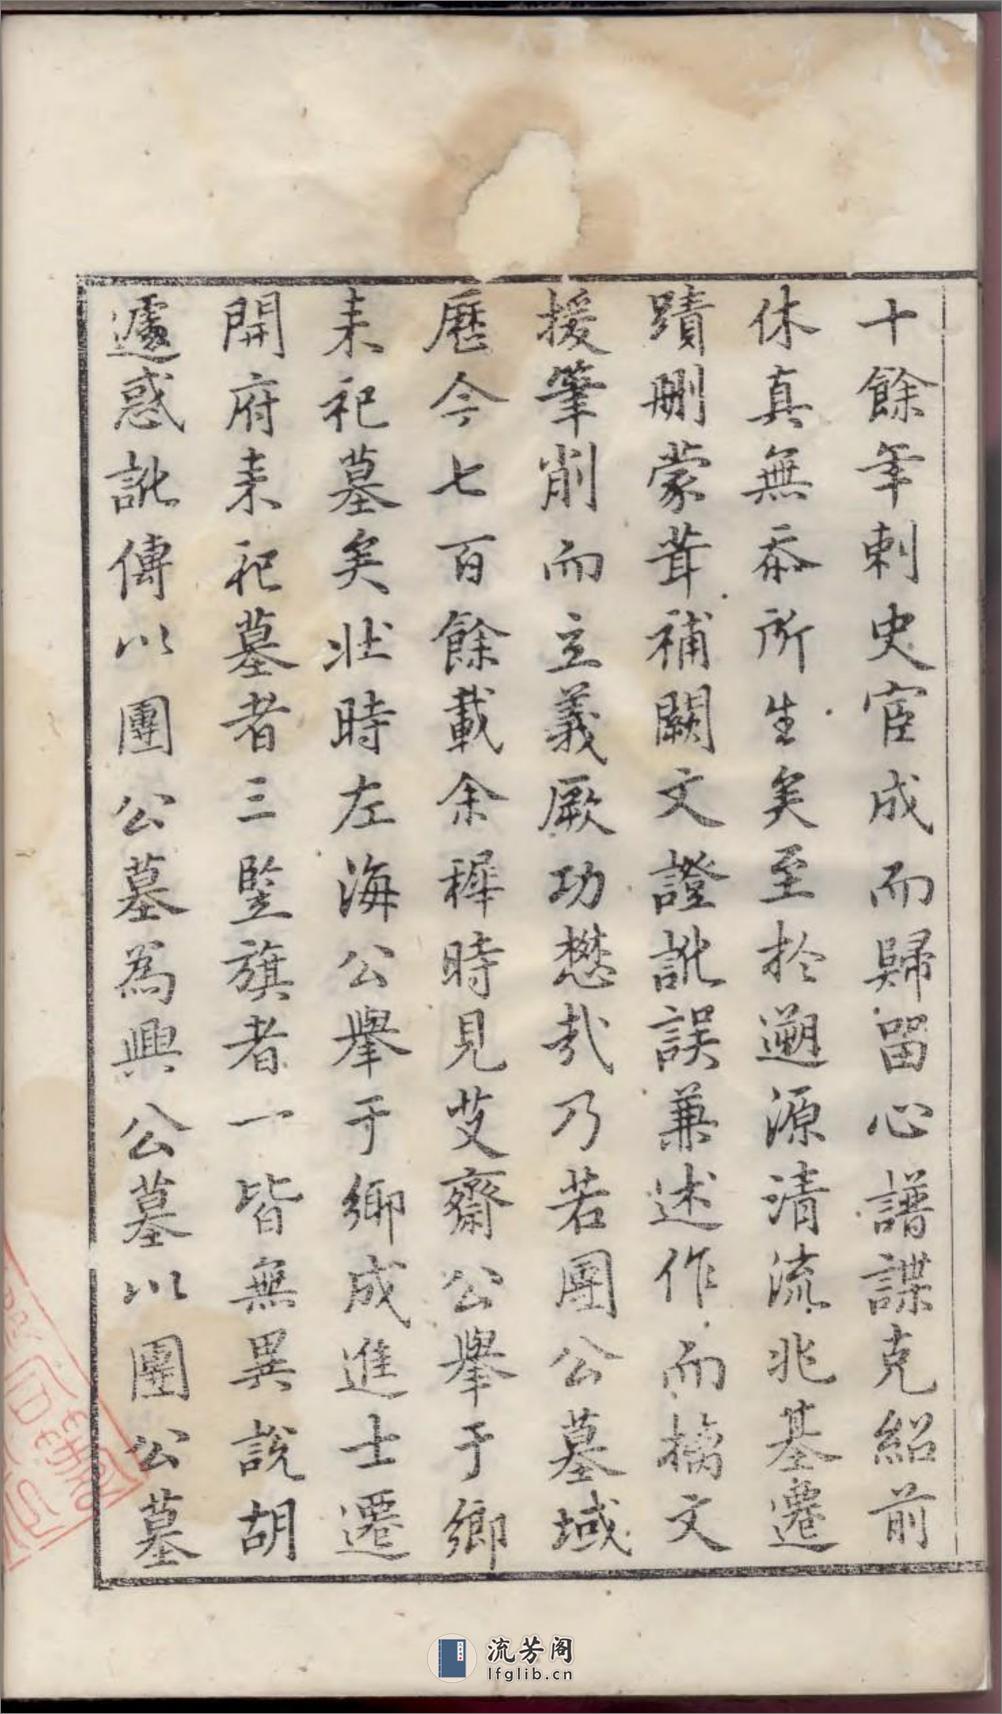 十餘年刺史宦成而歸留心譜諜克紹前
休真無忝所生矣至於遡源清流兆基遷
蹟刪蒙茸補闕文證訛誤兼述作而摛文
援筆削而立義厥功懋哉乃若團公墓域
歷今七百餘載余穉時見艾齋公舉于鄉
耒祀墓矣壯時左海公舉于鄉成進士遷
開府耒祀墓者三竪旗者一皆無異說胡
遽惑訛傳以團公墓為興公墓以團公墓
流芳阁
lfglib.cn